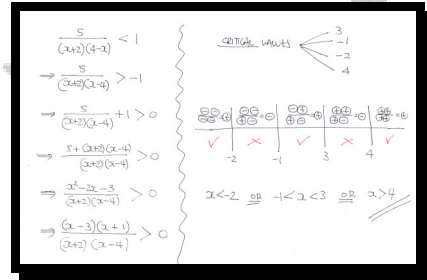 5/((x+2)(4-x)) < 1
⇒ 5/((x+2)(x-4)) > -1
⇒ 5/((x+2)(x-4)) + 1 > 0
⇒ (5+(x+2)(x-4))/((x+2)(x-4)) > 0
⇒ (x²-2x-3)/((x+2)(x-4)) > 0
⇒ ((x-3)(x+1))/((x+2)(x-4)) > 0
CRITICAL VALUES
3
-1
-2
4
⊖⊖/⊖⊖=⊕ | ⊖⊖/⊕⊖=⊖ | ⊖⊕/⊕⊖=⊕ | ⊕⊕/⊕⊖=⊖ | ⊕⊕/⊕⊕=⊕
✓ ✗ ✓ ✗ ✓
-2 -1 3 4
x<-2 OR -1<x<3 OR x>4